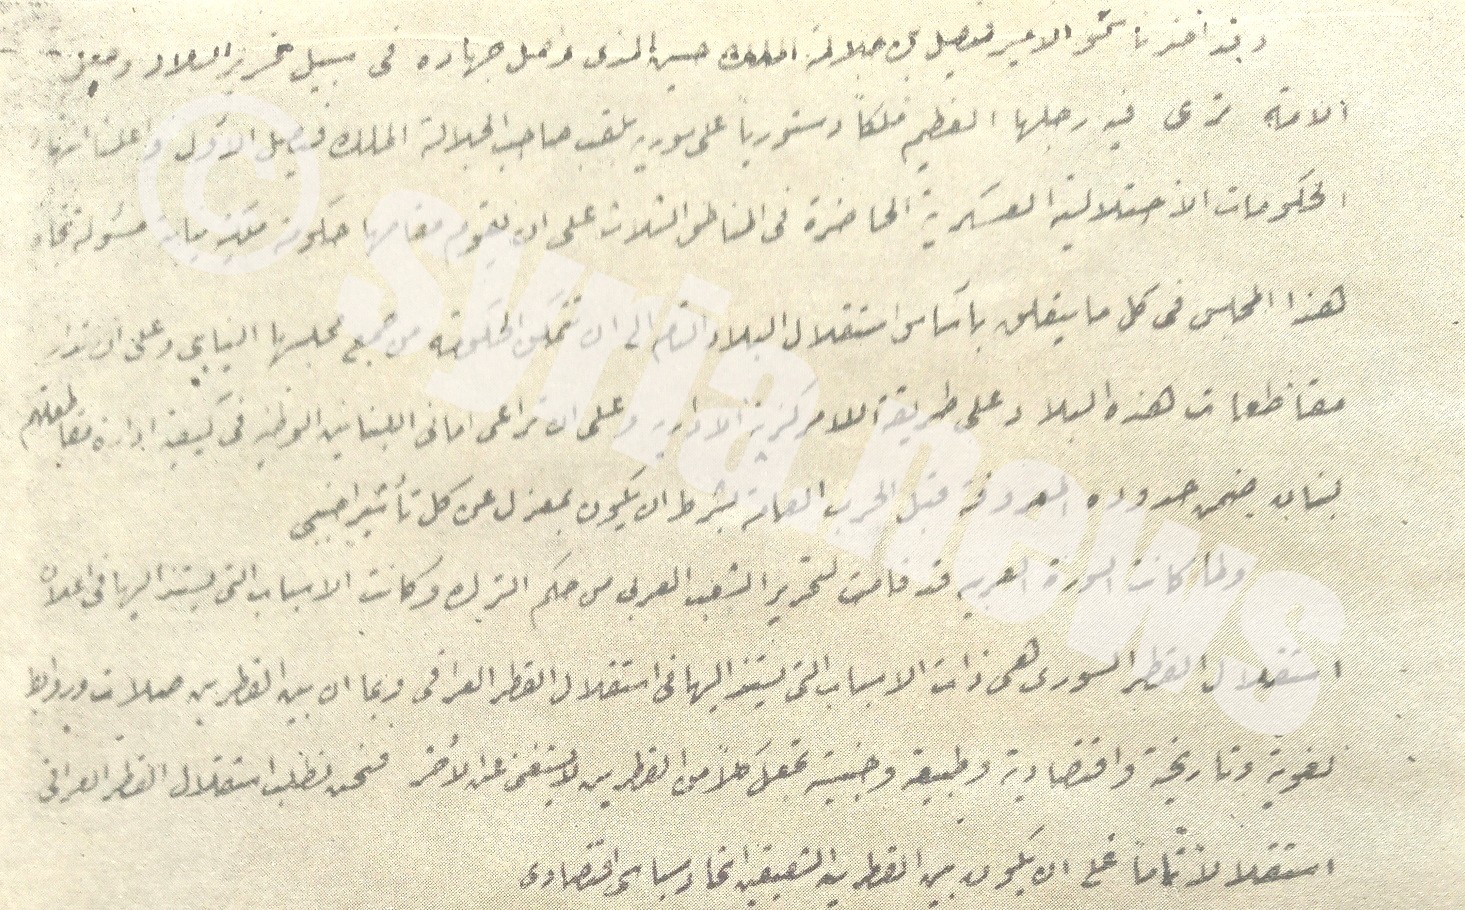 وقد اخترنا سمو الامير فيصل نجل جلالة الملك حسين الذى واصل جهاده فى سبيل تحرير البلاد وجعل
الامة ترى فيه رجلها العظيم ملكاً دستورياً على سوريه بلقب صاحب الجلالة الملك فيصل الاول واعلنا انتهاء
الحكومات الاحتلالية العسكرية الحاضرة فى المناطق الثلاث على ان يقوم مقامها حكومة ملكية نيابية مسئولة تجاه
هذا المجلس فى كل ما يتعلق بأساس استقلال البلاد التام الى ان تتمكن الحكومة من جمع مجلسها النيابي وعلى ان تدار
مقاطعات هذه البلاد على طريقة اللامركزية الادارية وعلى ان تراعى امانى اللبنانيين الوطنية فى كيفية ادارة مقاطعتهم
لبنان ضمن حدوده المعروفة قبل الحرب العامة بشرط ان يكون بمعزل عن كل تأثير اجنبي
ولما كانت الثورة العربية قد قامت لتحرير الشعب العربي من حكم الترك وكانت الاسباب التى يستند اليها فى اعلان
استقلال القطر السورى هى ذات الاسباب التى يستند اليها فى استقلال القطر العراقى وبما ان بين القطرين صلات وروابط
لغوية وتاريخية واقتصادية وطبيعية وجنسية تجعل كلاً من القطرين لا يستغنى عن الآخر فنحن نطلب استقلال القطر العراقى
استقلالاً تاماً على ان يكون بين القطرين الشقيقين اتحاد سياسى اقتصادى
© syria.news